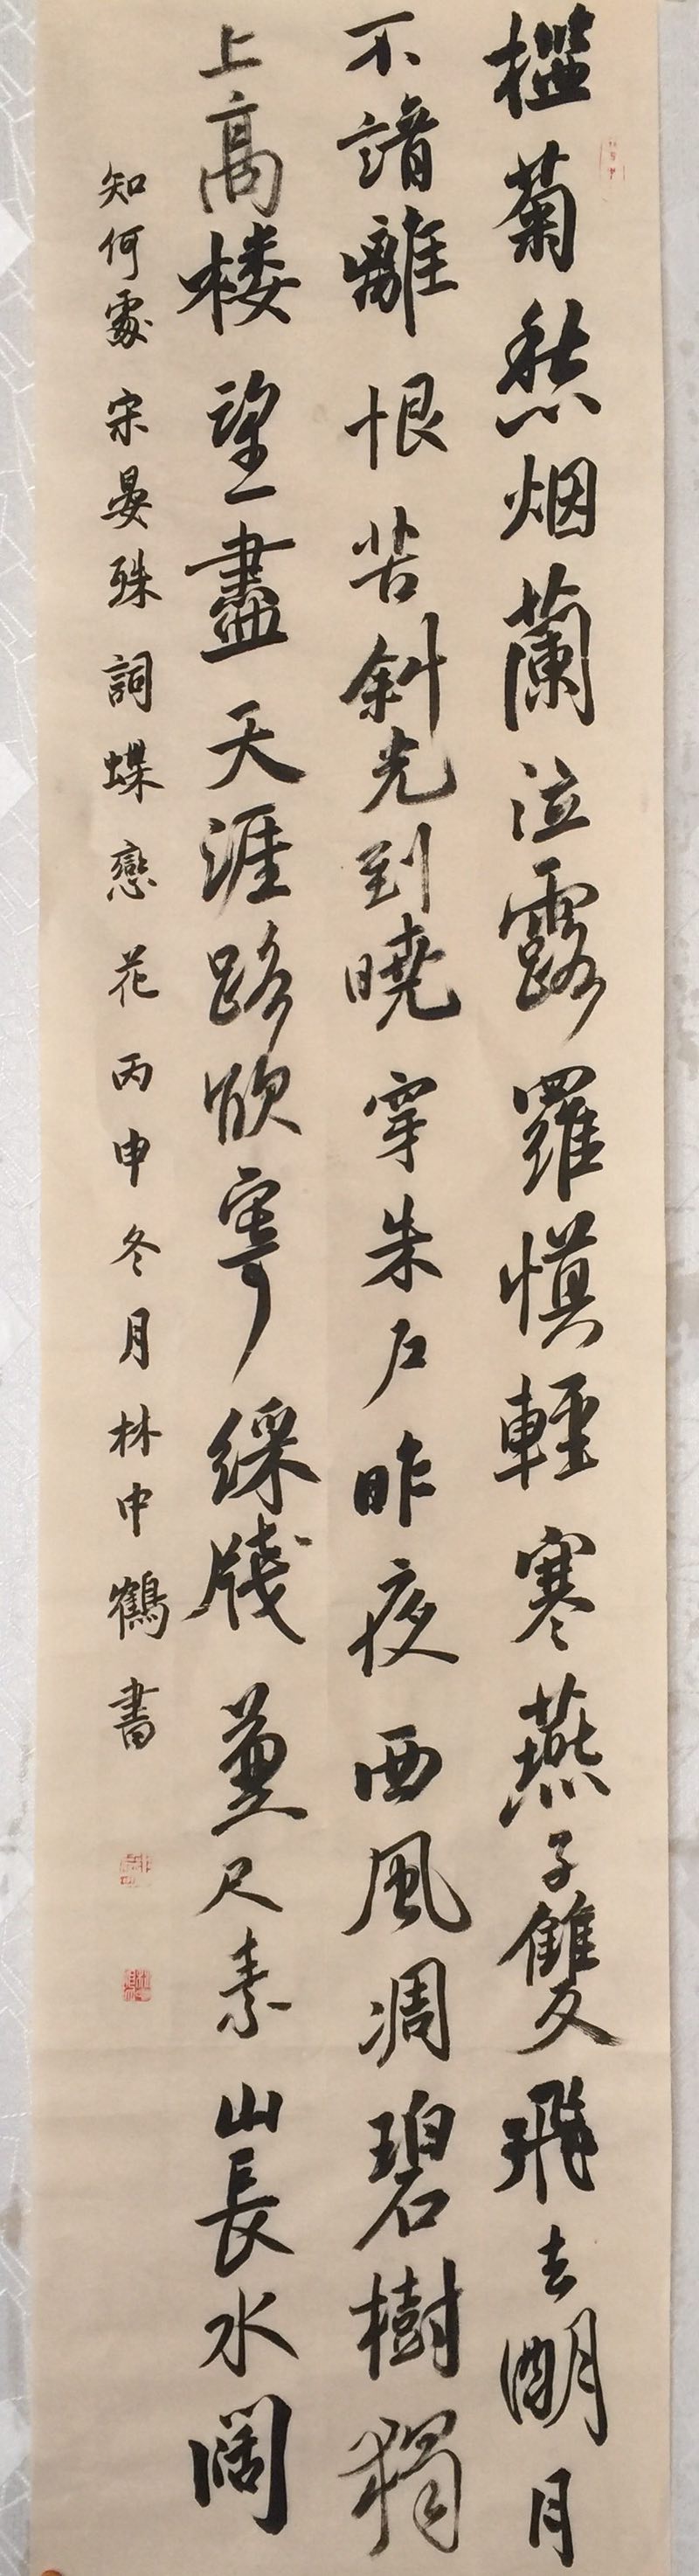 槛菊愁烟蘭泣露羅慎輕寒燕子雙飛去明月
不諳離恨苦斜光到曉穿朱户昨夜西風凋碧樹獨
上高楼望盡天涯路欲寄綵牋兼尺素山長水闊
知何處宋晏殊詞蝶戀花丙申冬月林中鶴書